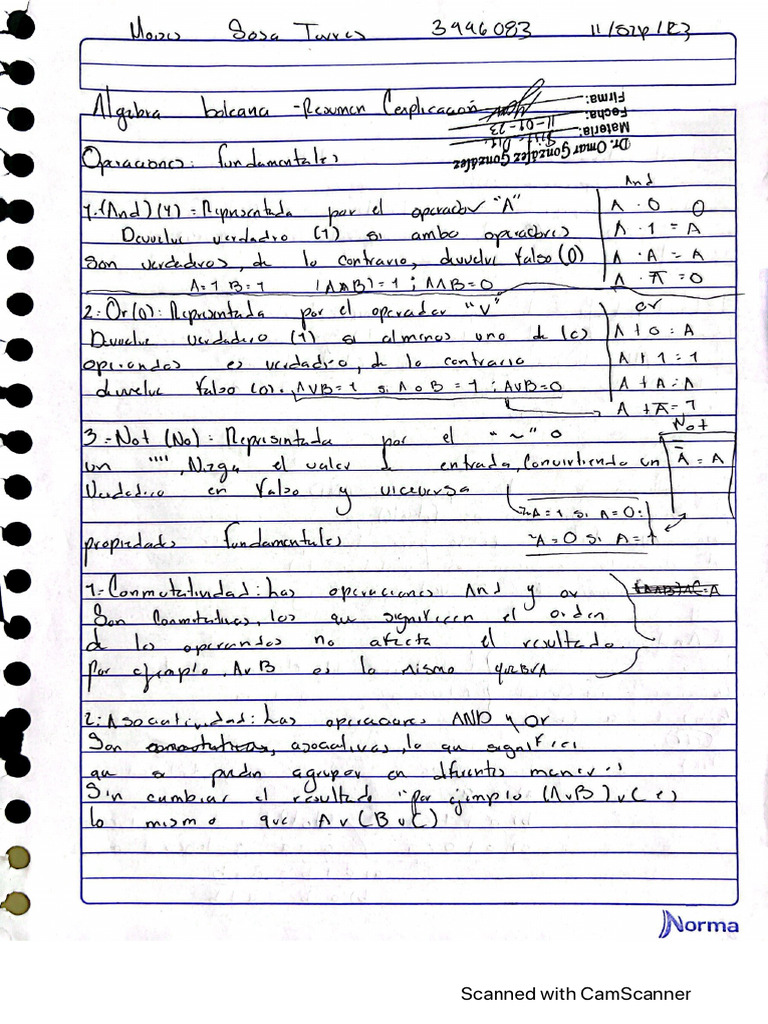 Moises Sosa Torres 3446083 11/Sep/23
Algebra boleana - Resumen (explicación
Firma:
Fecha: 11-09-23
Materia:
Dr. Omar González González
Operaciones: fundamentales
1.(And)(Y) = Representada por el operador "Λ"
Devuelve verdadro (1) si ambo operadores
Son verdaderos, de lo contrario, devuelve falso (0)
A=1 B=1 (A∧B)=1 ; A∧B=0
And
A · 0 0
A · 1 = A
A · A = A
A · A̅ = 0
2: Or(0): Representada por el operador "v"
Devuelve verdadero (1) si almenos uno de (o)
operandos es verdadro, de lo contrario
duvuelve falso (0). AvB=1 si A o B = 1 ; AvB=0
or
A + 0 = A
A + 1 = 1
A + A = A
A + A̅ = 1
3 = Not (No) = Representada por el "~" o
un "'", Niega el valor de entrada, Convirtiendo un
Verdadero en falso y viceversa
Not
A̿ = A
~A = 1 si A = 0 :
~A = 0 si A = 1
propiedades fundamentales
1= Conmutatividad: las operaciones And y or
Son Conmutativas, los que significan el orden
de los operandos no afecta el resultado.
Por ejemplo, AvB es lo mismo que BvA
2: Asociatividad: las operaciones AND y Or
Son asociativas, lo que significa
que se pueden agrupar en diferentes maneras
Sin cambiar el resultado "por ejemplo (AvB)vC es
lo mismo que Av(BvC)
Norma
Scanned with CamScanner